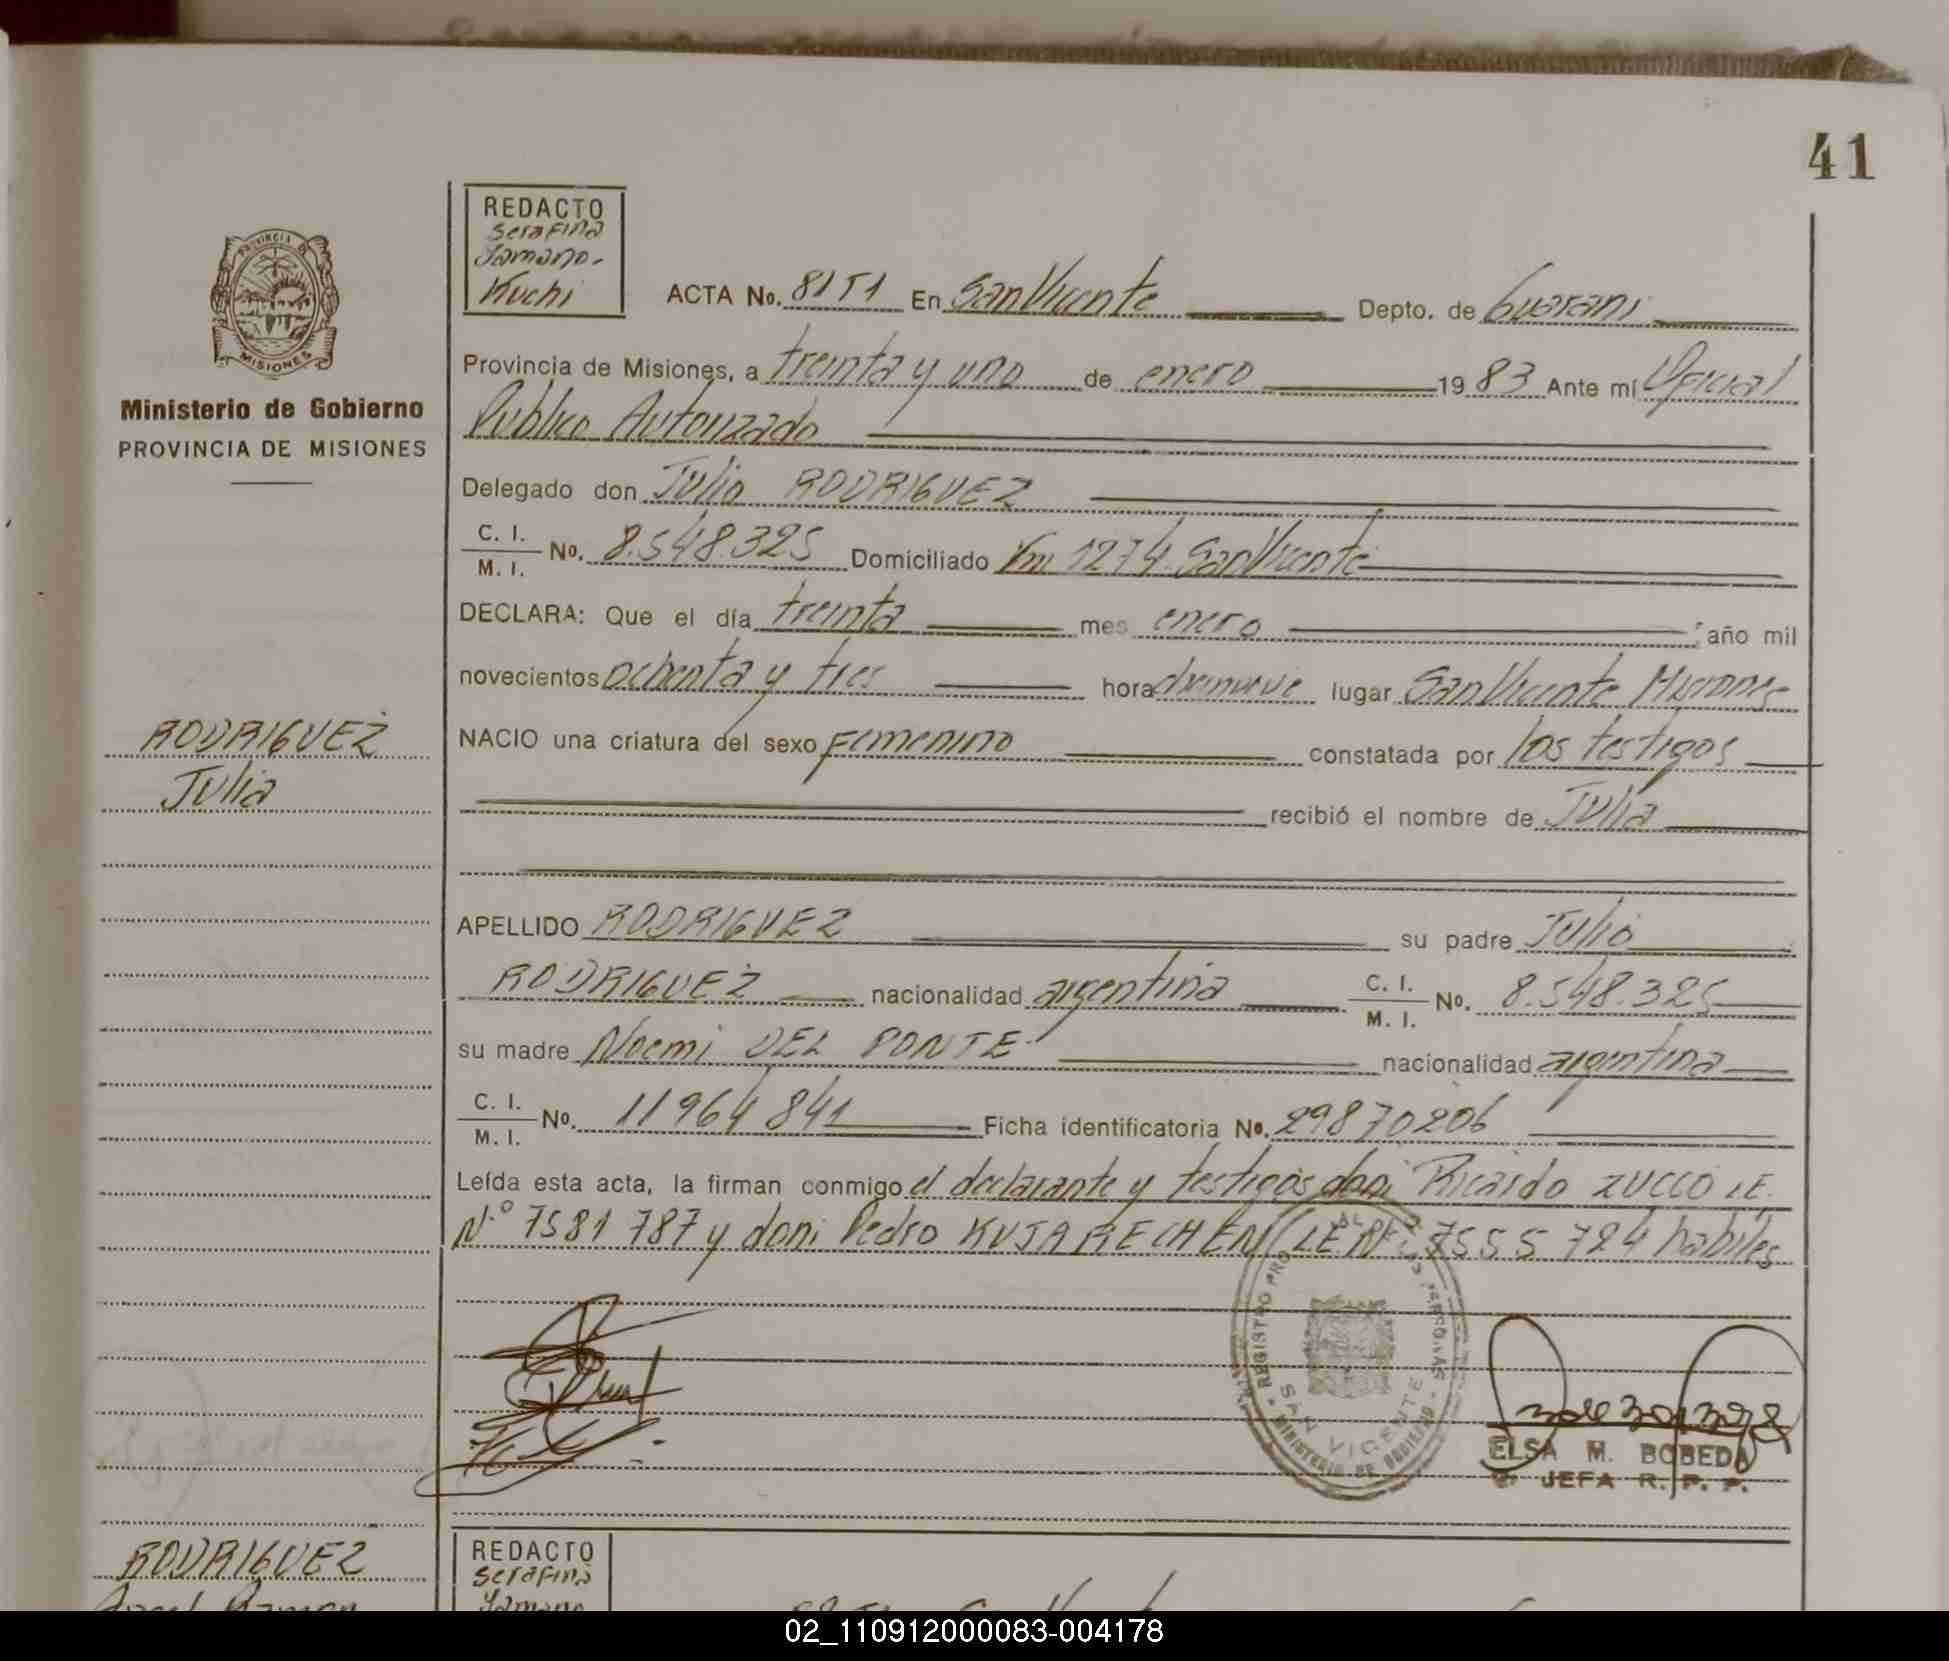 41
REDACTO
Serafina
Yamano-
Kuchi
PROVINCIA DE
MISIONES
Ministerio de Gobierno
PROVINCIA DE MISIONES
ACTA No. 81T1 En San Vicente Depto. de Guarani
Provincia de Misiones, a treinta y uno de enero 1983 Ante mí Oficial
Publico Autorizado
Delegado don Julio RODRIGUEZ
C. I.
M. I. No. 8.548.325 Domiciliado Km 1274 San Vicente
DECLARA: Que el día treinta mes enero año mil
novecientos ochenta y tres hora diecinueve lugar San Vicente Misiones
RODRIGUEZ
Julia
NACIO una criatura del sexo Femenino constatada por los testigos
recibió el nombre de Julia
APELLIDO RODRIGUEZ su padre Julio
RODRIGUEZ nacionalidad argentina C. I.
M. I. No. 8.548.325
su madre Noemi DEL PONTE nacionalidad argentina
C. I.
M. I. No. 11964841 Ficha identificatoria No. 29870206
Leída esta acta, la firman conmigo el declarante y testigos don: Ricardo ZUCCO L.E.
N.º 7581787 y don: Pedro KUJARECHEN L.E. Nº 7555724 habiles
REGISTRO PROVINCIAL DE LAS PERSONAS
SAN VICENTE
MINISTERIO DE GOBIERNO
ELSA M. BOBEDA
JEFA R. P. P.
RODRIGUEZ
REDACTO
Serafina
Yamano
02_110912000083-004178